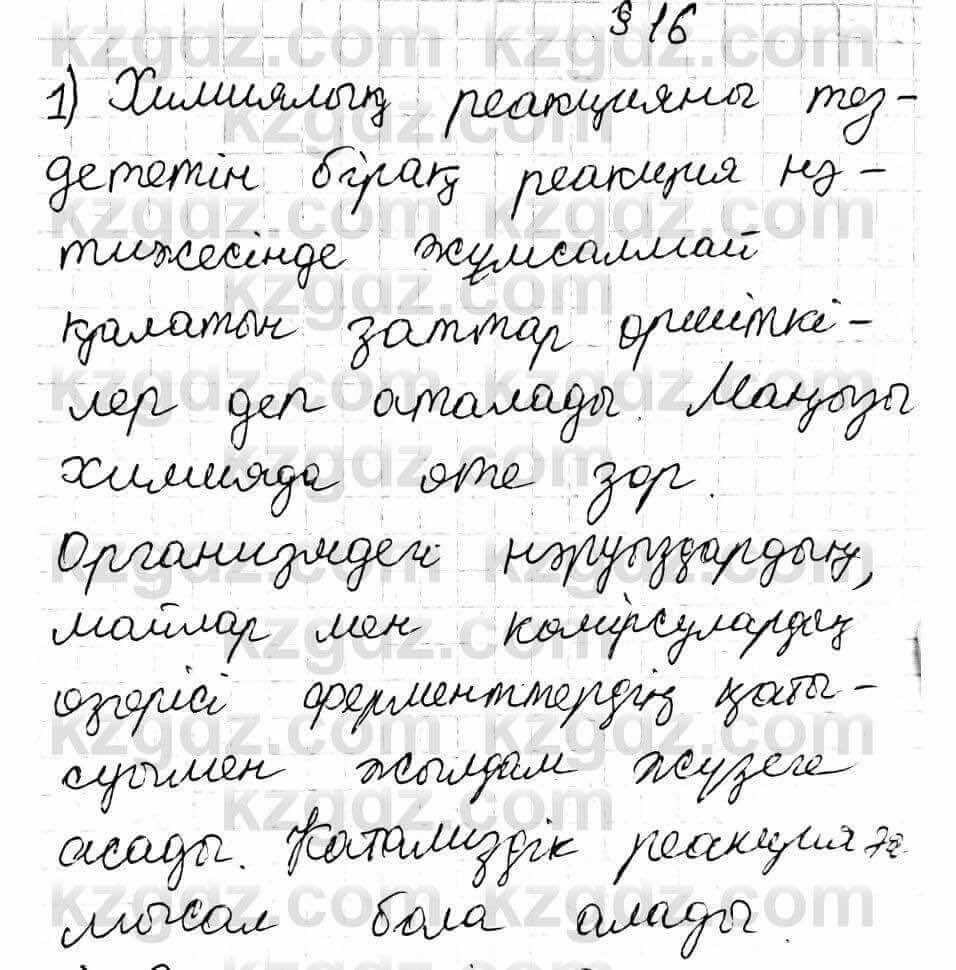 § 16
1) Химиялық реакцияны тез-
дететін бірақ реакция нә-
тижесінде жұмсалмай
қалатын заттар өршіткі-
лер деп аталады. Маңызы
химияда өте зор.
Организмдегі нәруыздардың,
майлар мен көмірсулардың
өзгерісі ферменттердің қаты-
суымен жылдам жүзеге
асады. Катализдік реакция
мысал бола алады.
kzgdz.com